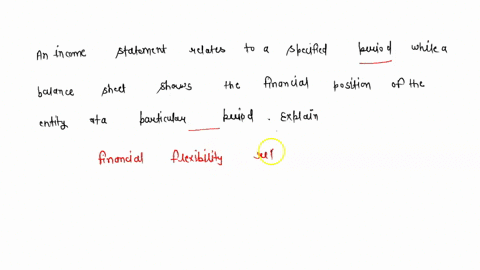 An income statement relates to a specified period while a
balance sheet shows the financial position of the
entity at a particular period . Explain
financial flexibility